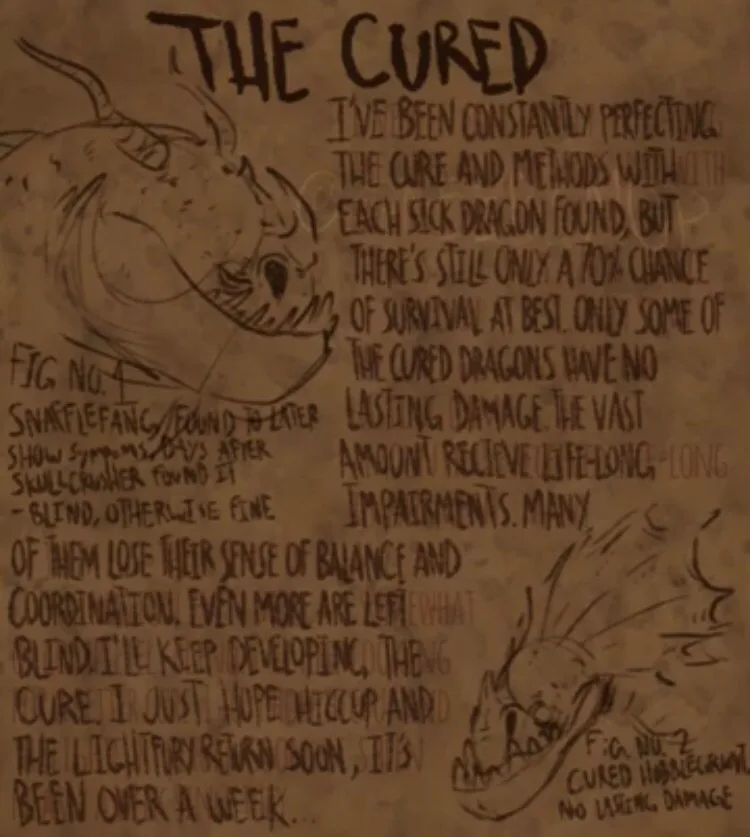 THE CURED
I'VE BEEN CONSTANTLY PERFECTING
THE CURE AND METHODS WITH
EACH SICK DRAGON FOUND, BUT
THERE'S STILL ONLY A 70% CHANCE
OF SURVIVAL AT BEST. ONLY SOME OF
THE CURED DRAGONS HAVE NO
LASTING DAMAGE. THE VAST
AMOUNT RECIEVE LIFE-LONG
IMPAIRMENTS. MANY
OF THEM LOSE THEIR SENSE OF BALANCE AND
COORDINATION. EVEN MORE ARE LEFT
BLIND. I'LL KEEP DEVELOPING THE
CURE. I JUST HOPE HICCUP AND
THE LIGHTFURY RETURN SOON, IT'S
BEEN OVER A WEEK...
FIG NO. 1
SNAFFLEFANG, FOUND TO LATER
SHOW SYMPTOMS, DAYS AFTER
SKULLCRUSHER FOUND IT
- BLIND, OTHERWISE FINE
FIG. NO. 2
CURED HOBBLEGRUNT,
NO LASTING DAMAGE